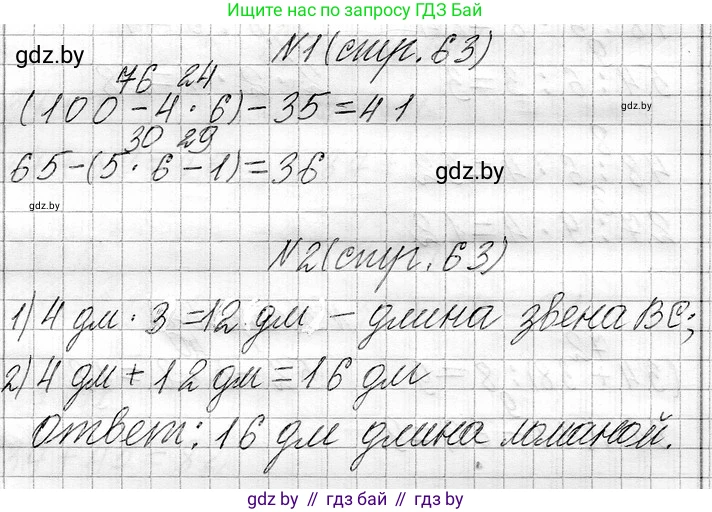 Ищите нас по запросу ГДЗ Бай
gdz.by
N1 (стр. 63)
76 24
(100 - 4 · 6) - 35 = 41
gdz.by
30 29
65 - (5 · 6 - 1) = 36
gdz.by
gdz.by
N2 (стр. 63)
1) 4 дм · 3 = 12 дм - длина звена BC;
2) 4 дм + 12 дм = 16 дм
Ответ: 16 дм длина ломаной.
gdz.by // гдз бай // гдз.by